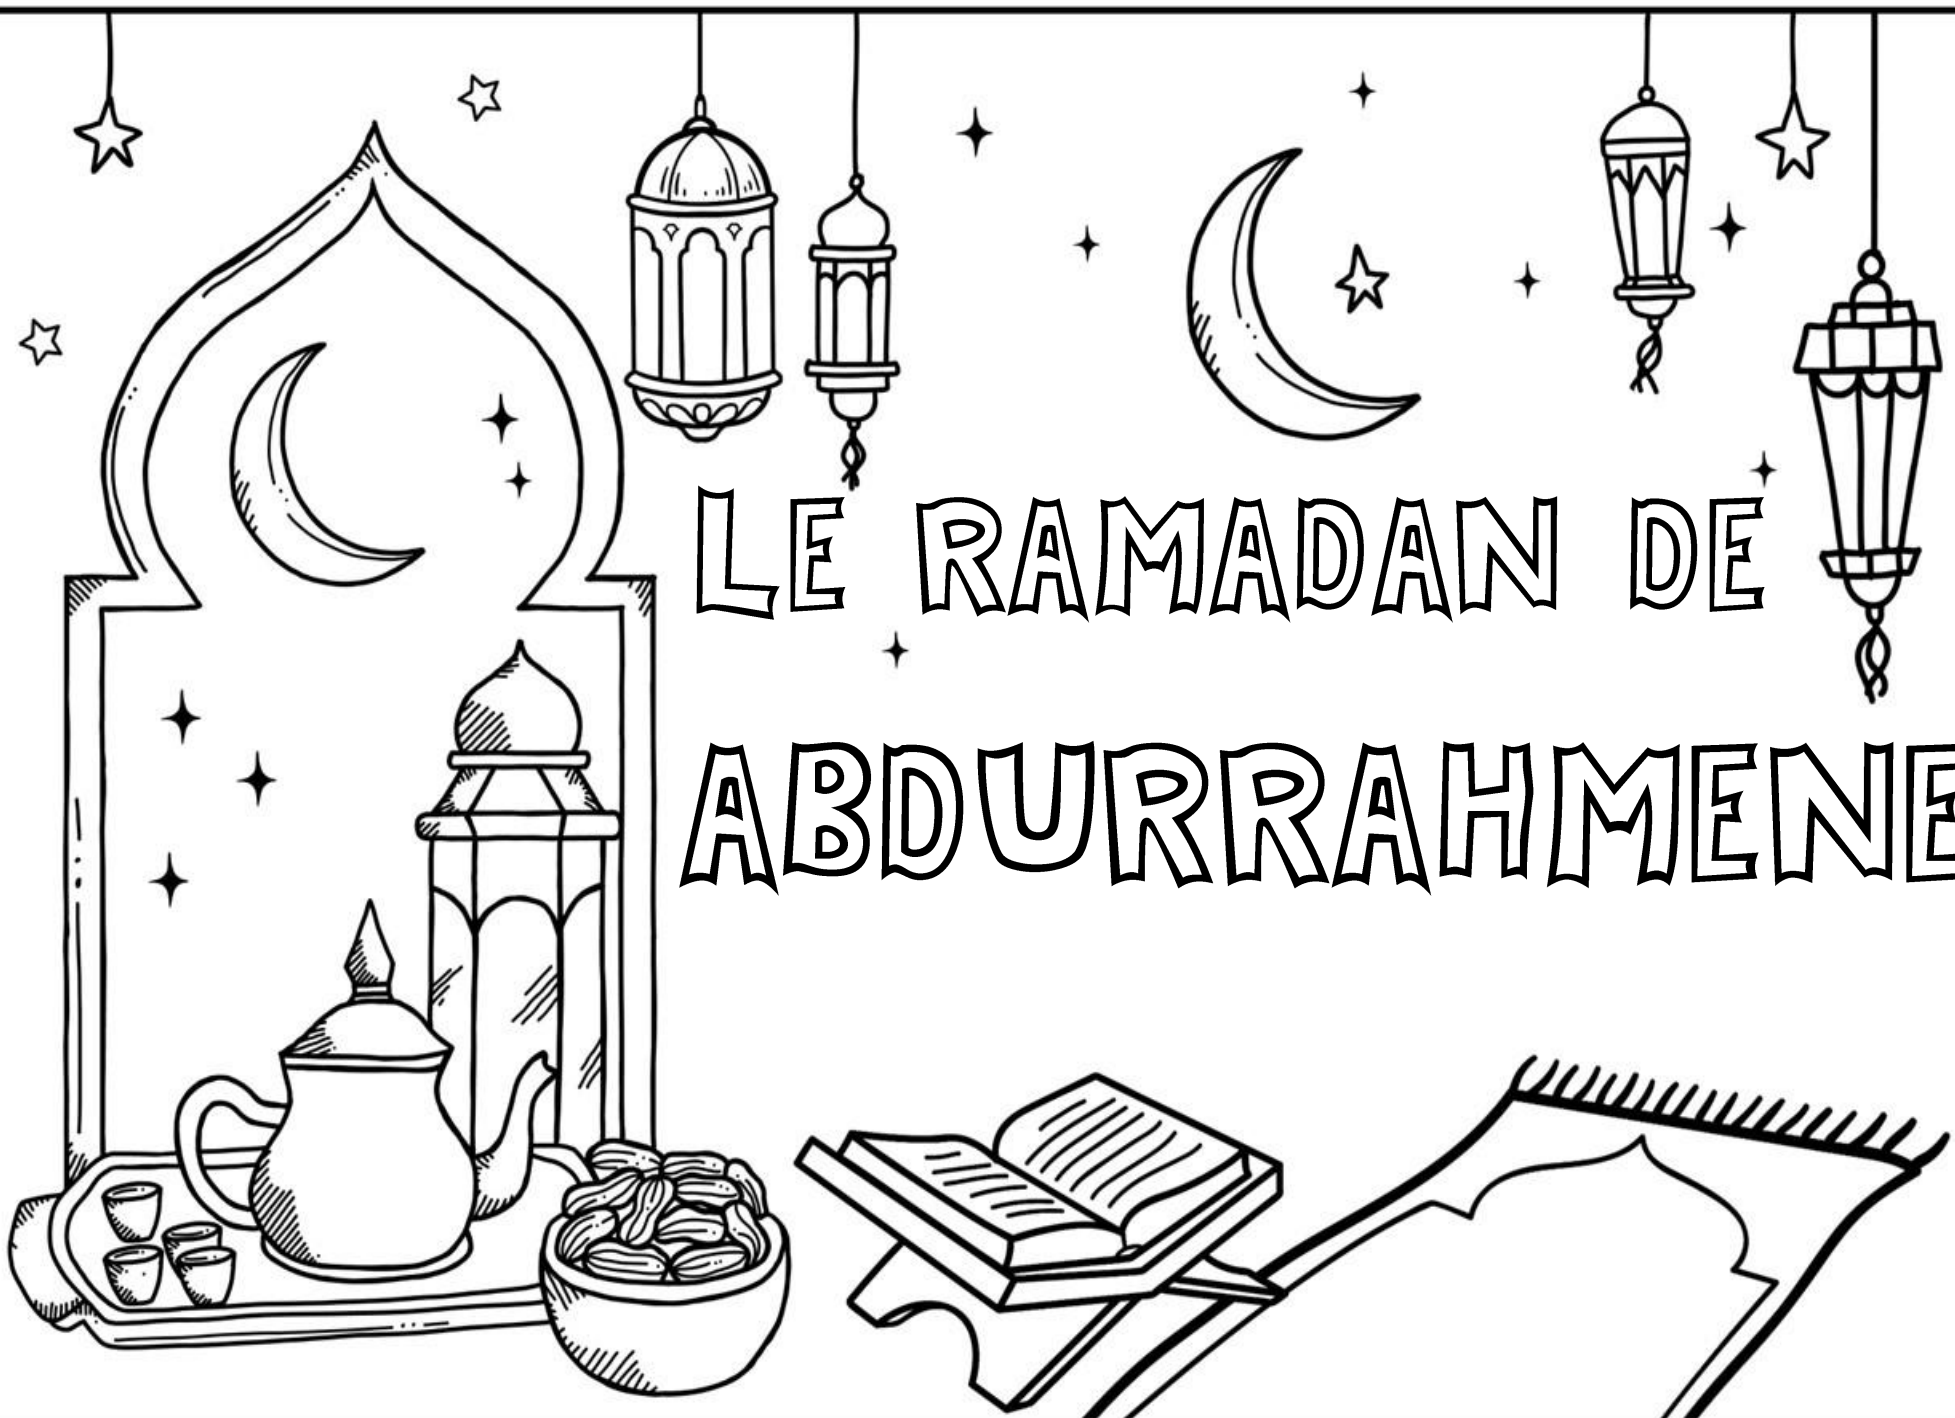 LE RAMADAN DE
ABDURRAHMENE